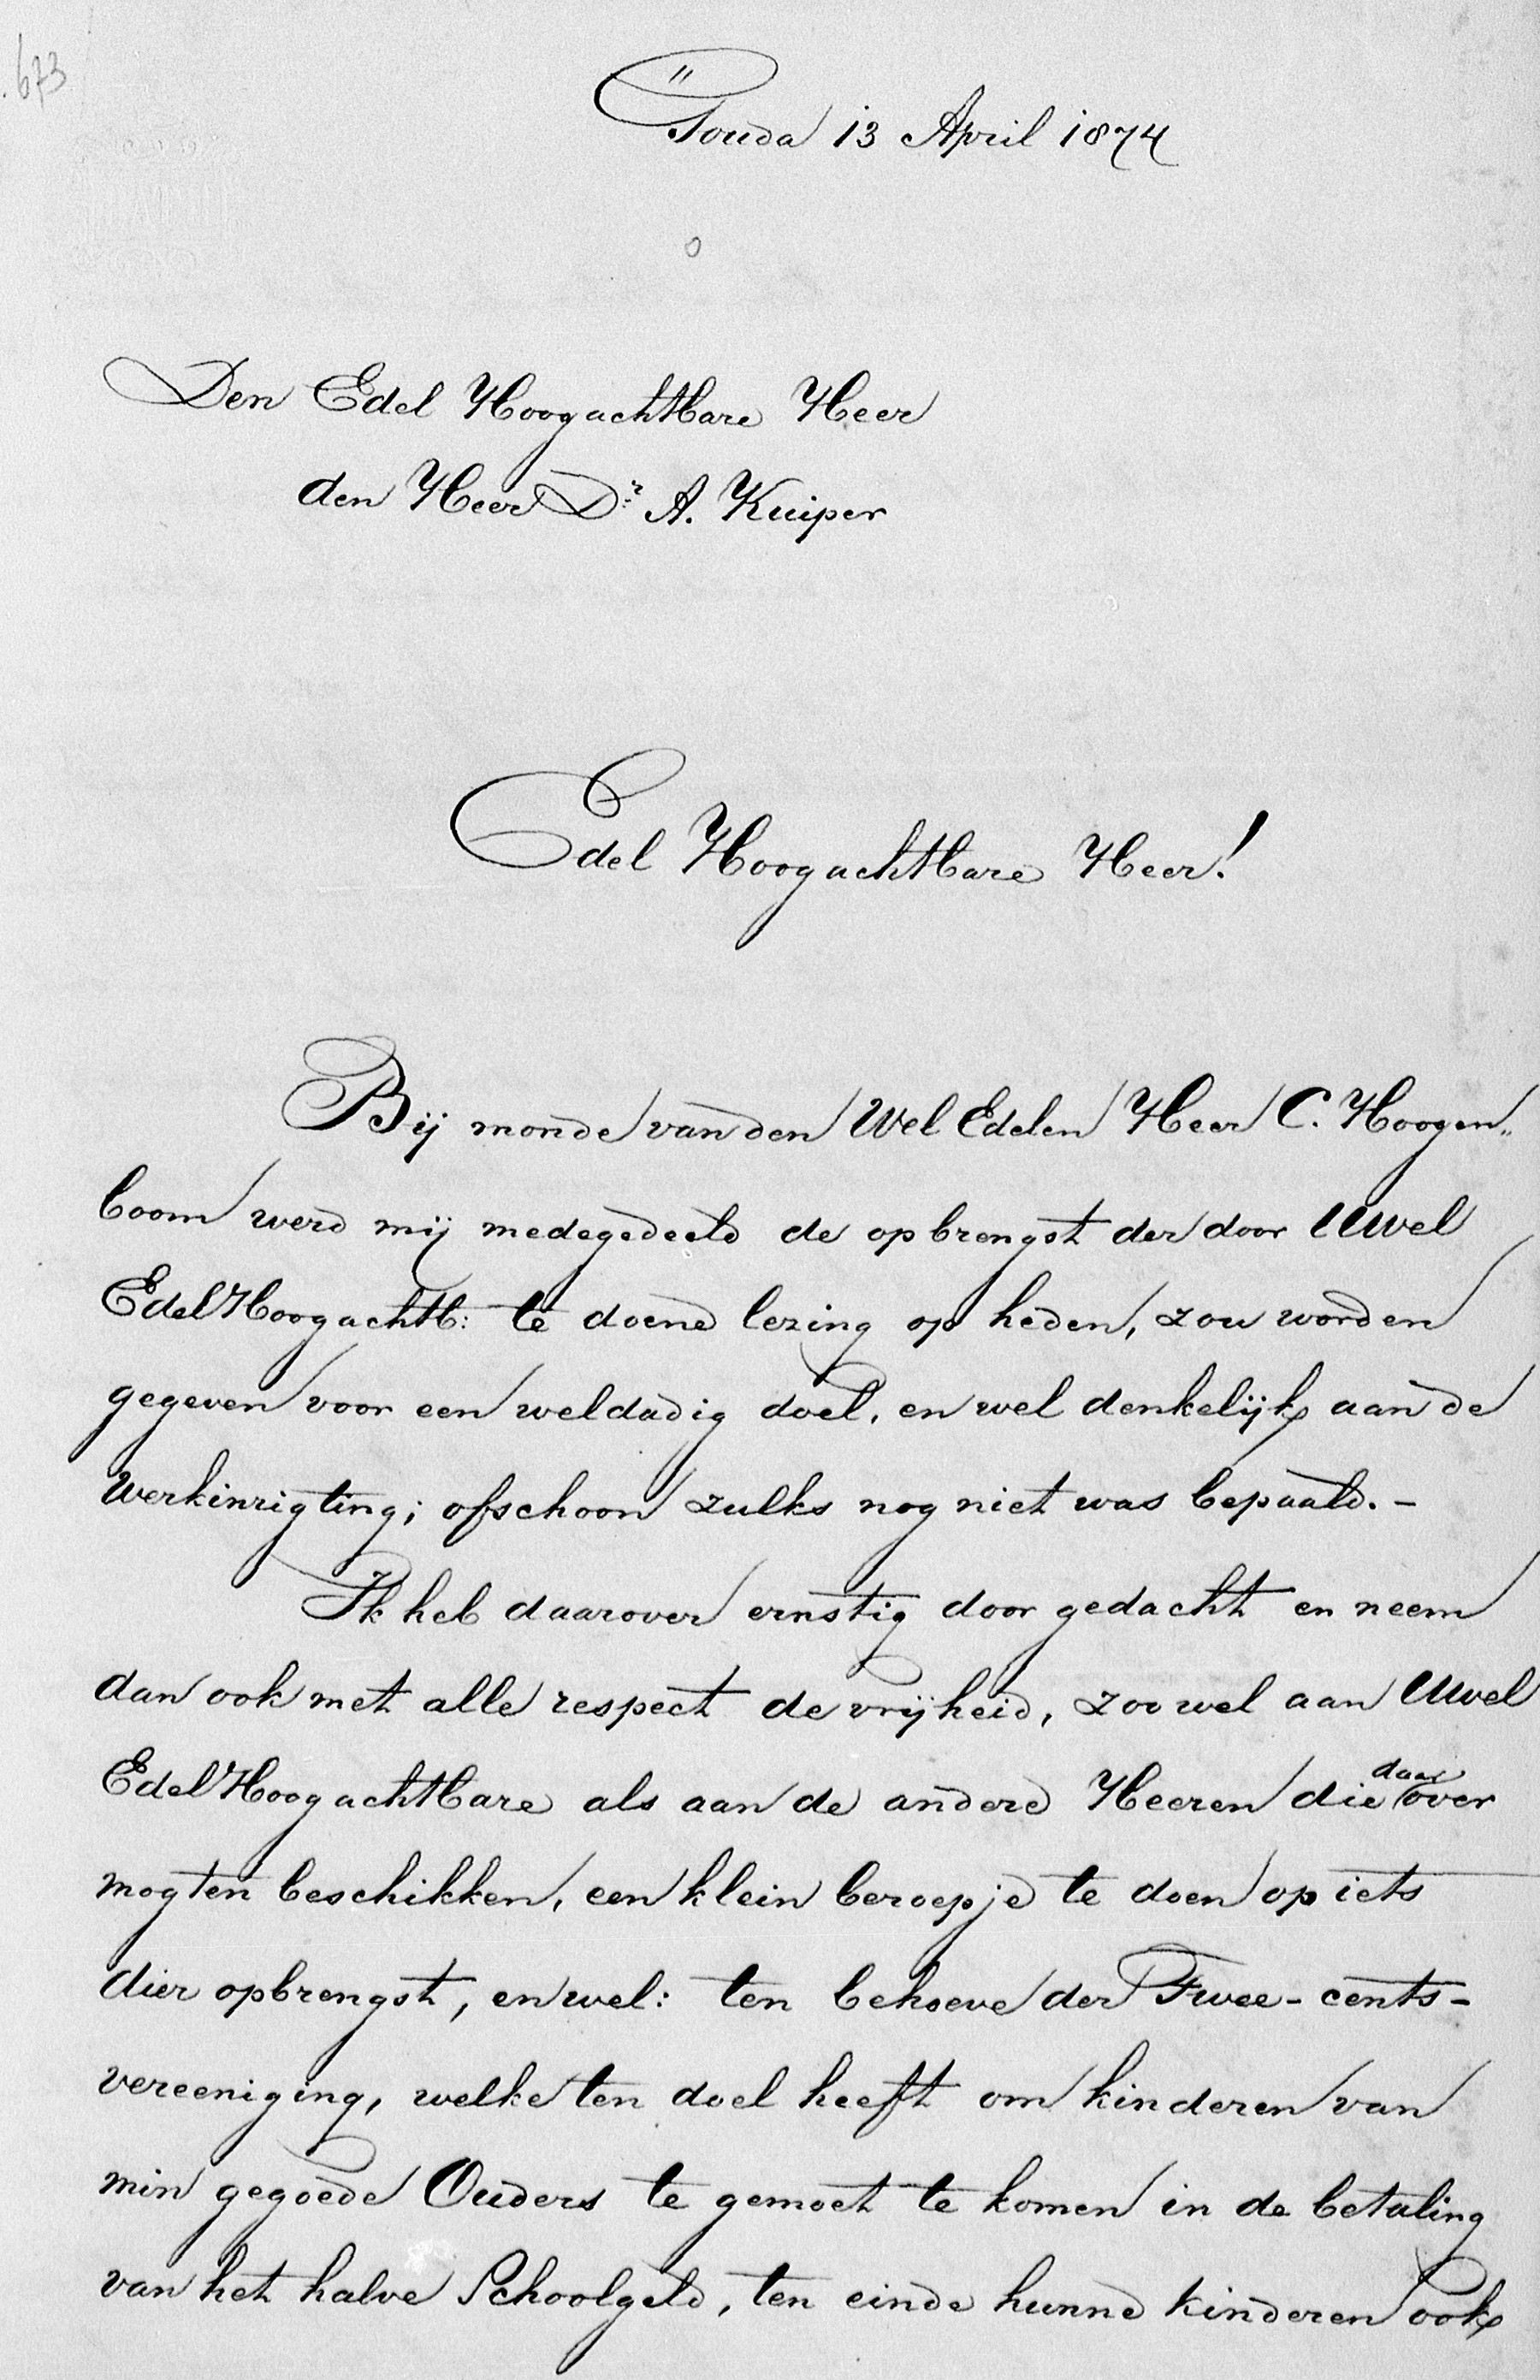 673
Gouda 13 April 1874
Den Edel Hoogachtbare Heer
den Heer Dr. A. Kuiper
Edel Hoogachtbare Heer!
Bij monde van den Wel Edelen Heer C. Hoogen„
boom werd mij medegedeeld de opbrengst der door UWel
EdelHoogachtb: te doene lezing op heden, zou worden
gegeven voor een weldadig doel, en wel denkelijk aan de
werkinrigting; ofschoon zulks nog niet was bepaald. -
Ik heb daarover ernstig door gedacht en neem
dan ook met alle respect de vrijheid, zoo wel aan UWel
EdelHoogachtbare als aan de andere Heeren die daar over
mogten beschikken, een klein beroepje te doen op iets
dier opbrengst, en wel: ten behoeve der Twee-cents-
vereeniging, welke ten doel heeft om kinderen van
min gegoede Ouders te gemoet te komen in de betaling
van het halve Schoolgeld, ten einde hunne kinderen ook